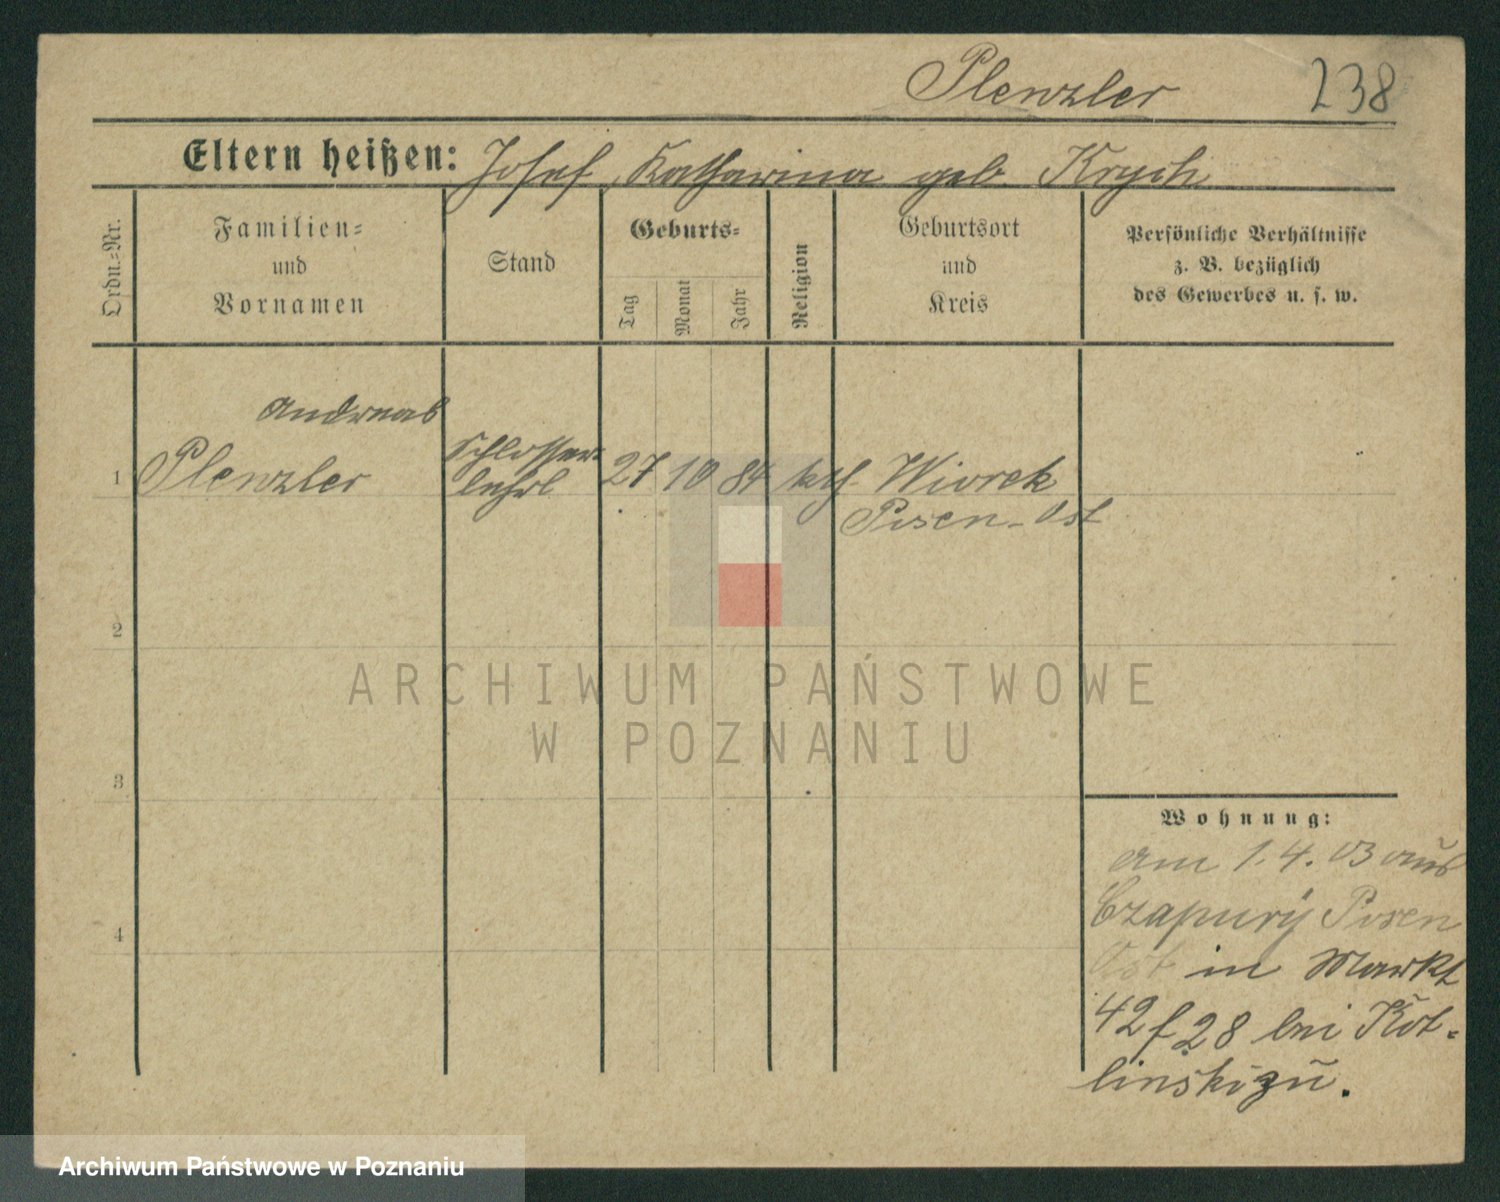 Plenzler 238
Eltern heißen: Josef, Katharina geb. Krych
Ordn.-Nr.
Familien-
und
Vornamen
Stand
Geburts-
Tag
Monat
Jahr
Religion
Geburtsort
und
Kreis
Persönliche Verhältnisse
z. B. bezüglich
des Gewerbes u. s. w.
Andreas
1 Plenzler Schlosser- 27 10 84 kth Wiorek
lehrl Posen-Ost
2
3
4
Wohnung:
am 1.4.03 aus
Czapury Posen
Ost in Markt
42 f 28 bei Kot-
linski zu.
ARCHIWUM PAŃSTWOWE
W POZNANIU
Archiwum Państwowe w Poznaniu